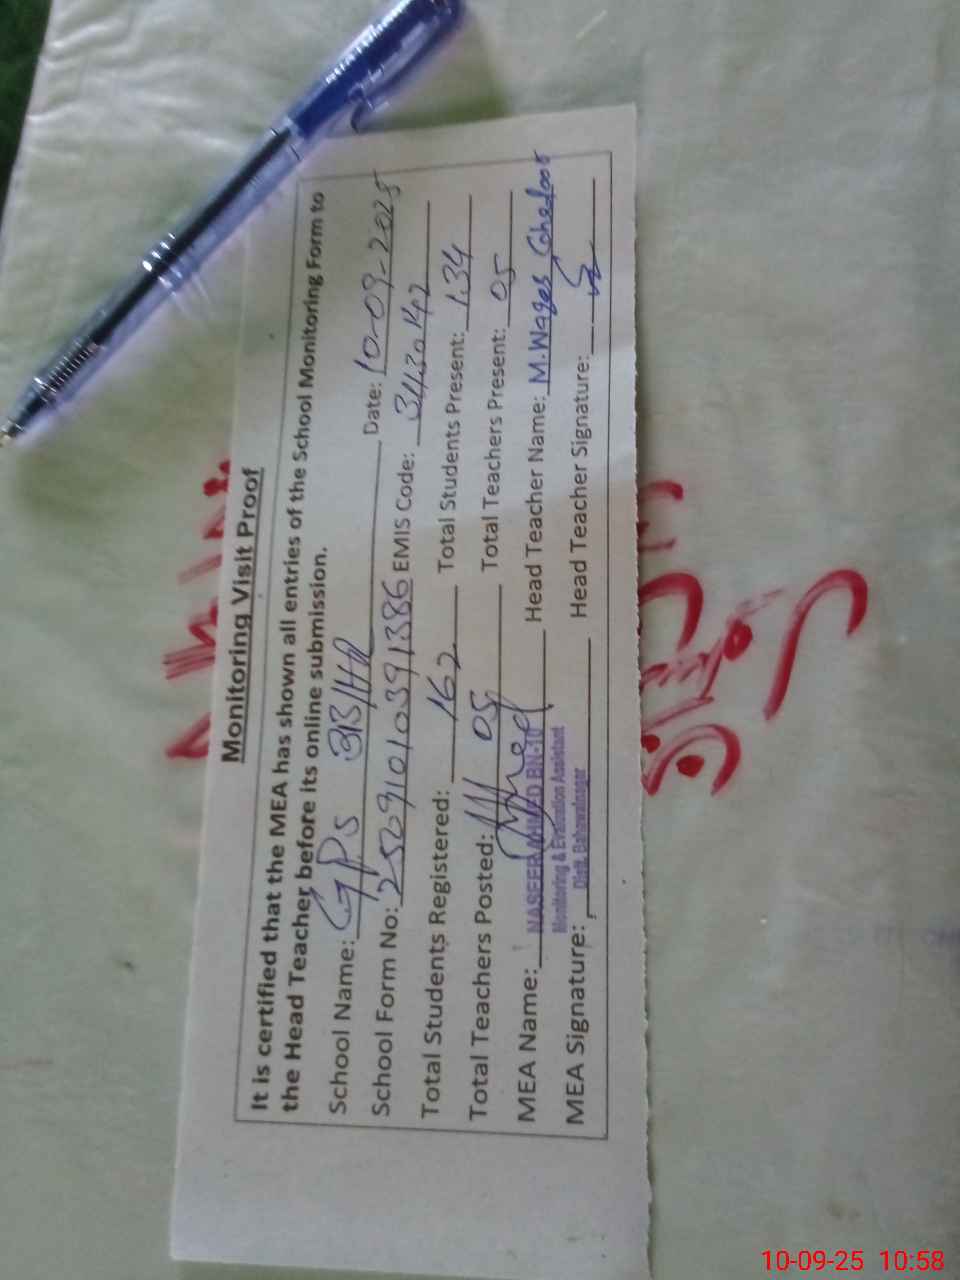 Monitoring Visit Proof
It is certified that the MEA has shown all entries of the School Monitoring Form to
the Head Teacher before its online submission.
School Name: GPS 313/HR Date: 10-09-2025
School Form No: 25091010391386 EMIS Code: 31130142
Total Students Registered: 162 Total Students Present: 134
Total Teachers Posted: 05 Total Teachers Present: 05
MEA Name: NASEER AHMED BN-10 Head Teacher Name: M. Waqas Ghafoor
Monitoring & Evaluation Assistant
Distt. Bahawalnagar
MEA Signature: Head Teacher Signature:
10-09-25 10:58